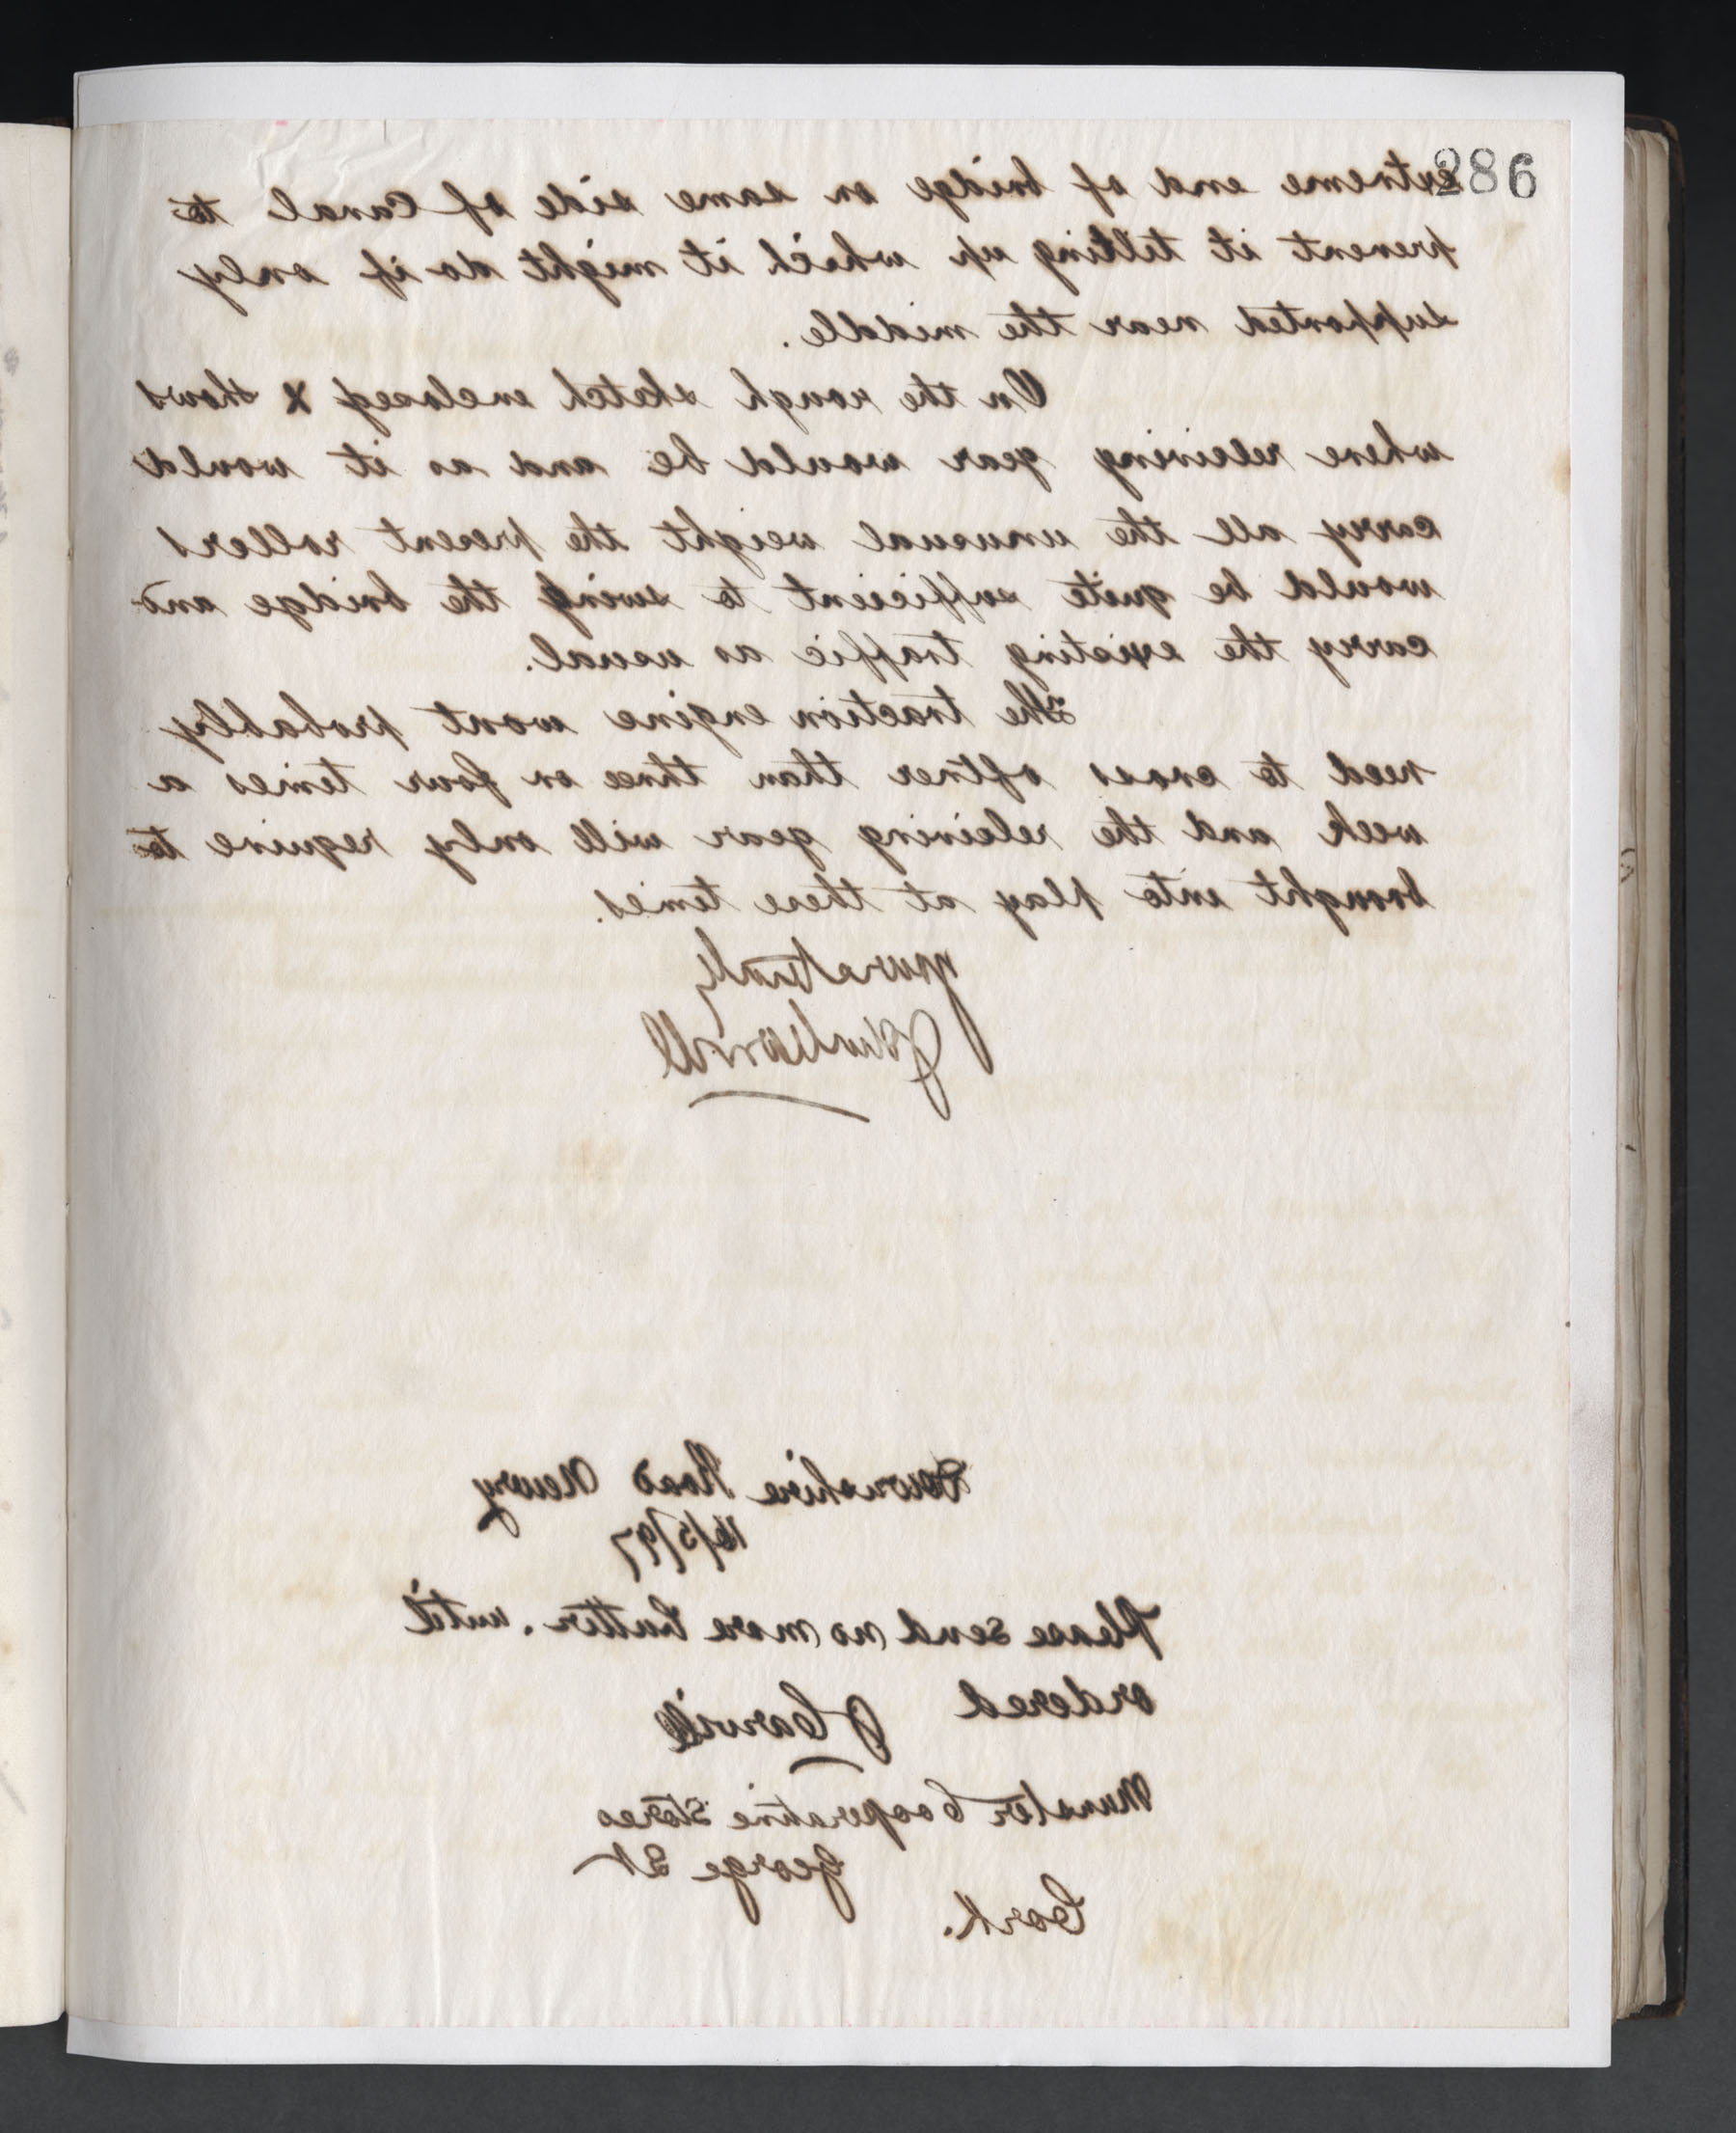 286
extreme end of bridge on same side of Canal to
prevent it tilting up which it might do if only
supported near the middle.
On the rough sketch enclosed x shows
where releiving gear would be and as it would
carry all the unusual weight the present rollers
would be quite sufficient to swing the bridge and
carry the existing traffic as usual.
The traction engine wont probably
need to cross oftner than three or four times a
week and the releiving gear will only require to
brought into play at these times.
Yours truly
Downshire Road Newry
16/5/97
Please send no more butter. until
ordered J Carvill
Munster Cooperative Stores
George St
Cork.